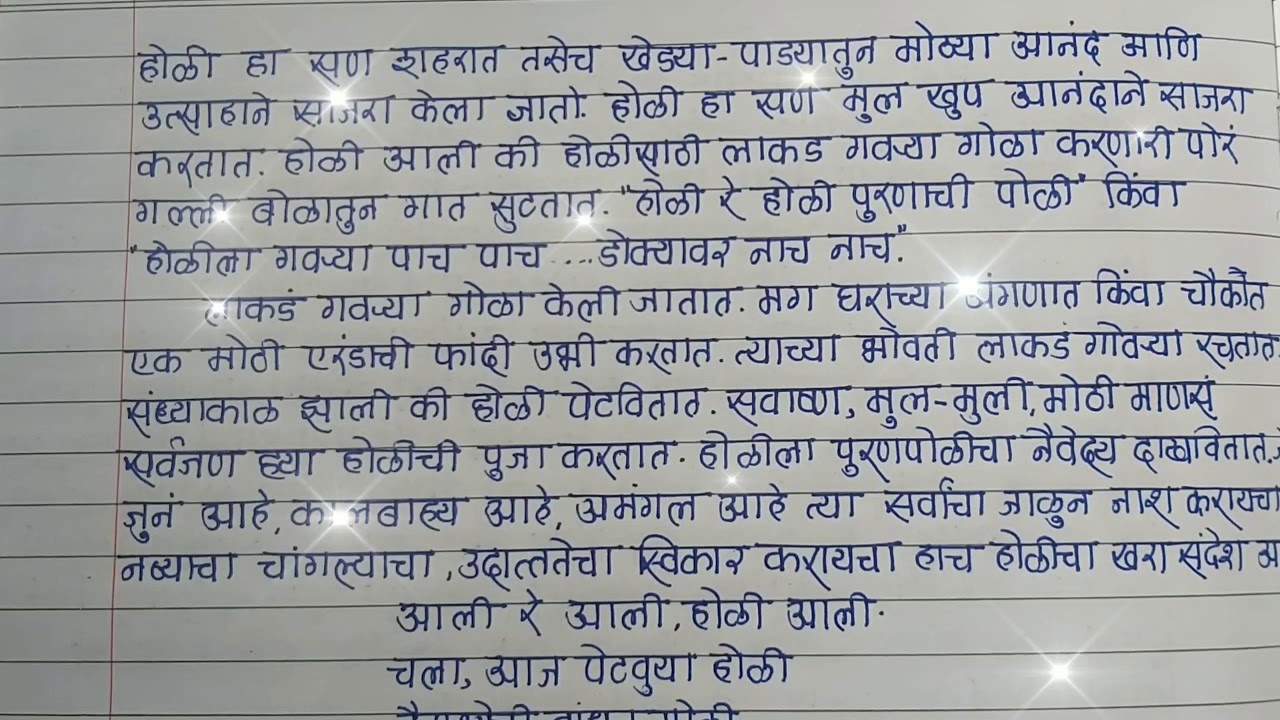 होळी हा सण शहरात तसेच खेड्या-पाड्यातुन मोठ्या आनंद आणि
उत्साहाने साजरा केला जातो. होळी हा सण मुल खुप आनंदाने साजरा
करतात. होळी आली की होळीसाठी लाकड गवऱ्या गोळा करणारी पोरं
गल्ली बोळातुन गात सुटतात. "होळी रे होळी पुरणाची पोळी" किंवा
"होळीला गवऱ्या पाच पाच ....डोक्यावर नाच नाच."
लाकडं गवऱ्या गोळा केली जातात. मग घराच्या अंगणात किंवा चौकौत
एक मोठी एरंडाची फांदी उभी करतात. त्याच्या भोवती लाकडं गोवऱ्या रचतात
संध्याकाळ झाली की होळी पेटवितात. सवाष्ण, मुल-मुली, मोठी माणसं
सर्वजण ह्या होळीची पुजा करतात. होळीला पुरणपोळीचा नैवेद्य दाखवितात.
जुनं आहे, कालबाह्य आहे, अमंगल आहे त्या सर्वांचा जाळुन नाश करायचा
नव्याचा चांगल्याचा, उदात्ततेचा स्विकार करायचा हाच होळीचा खरा संदेश
आली रे आली, होळी आली.
चला, आज पेटवुया होळी